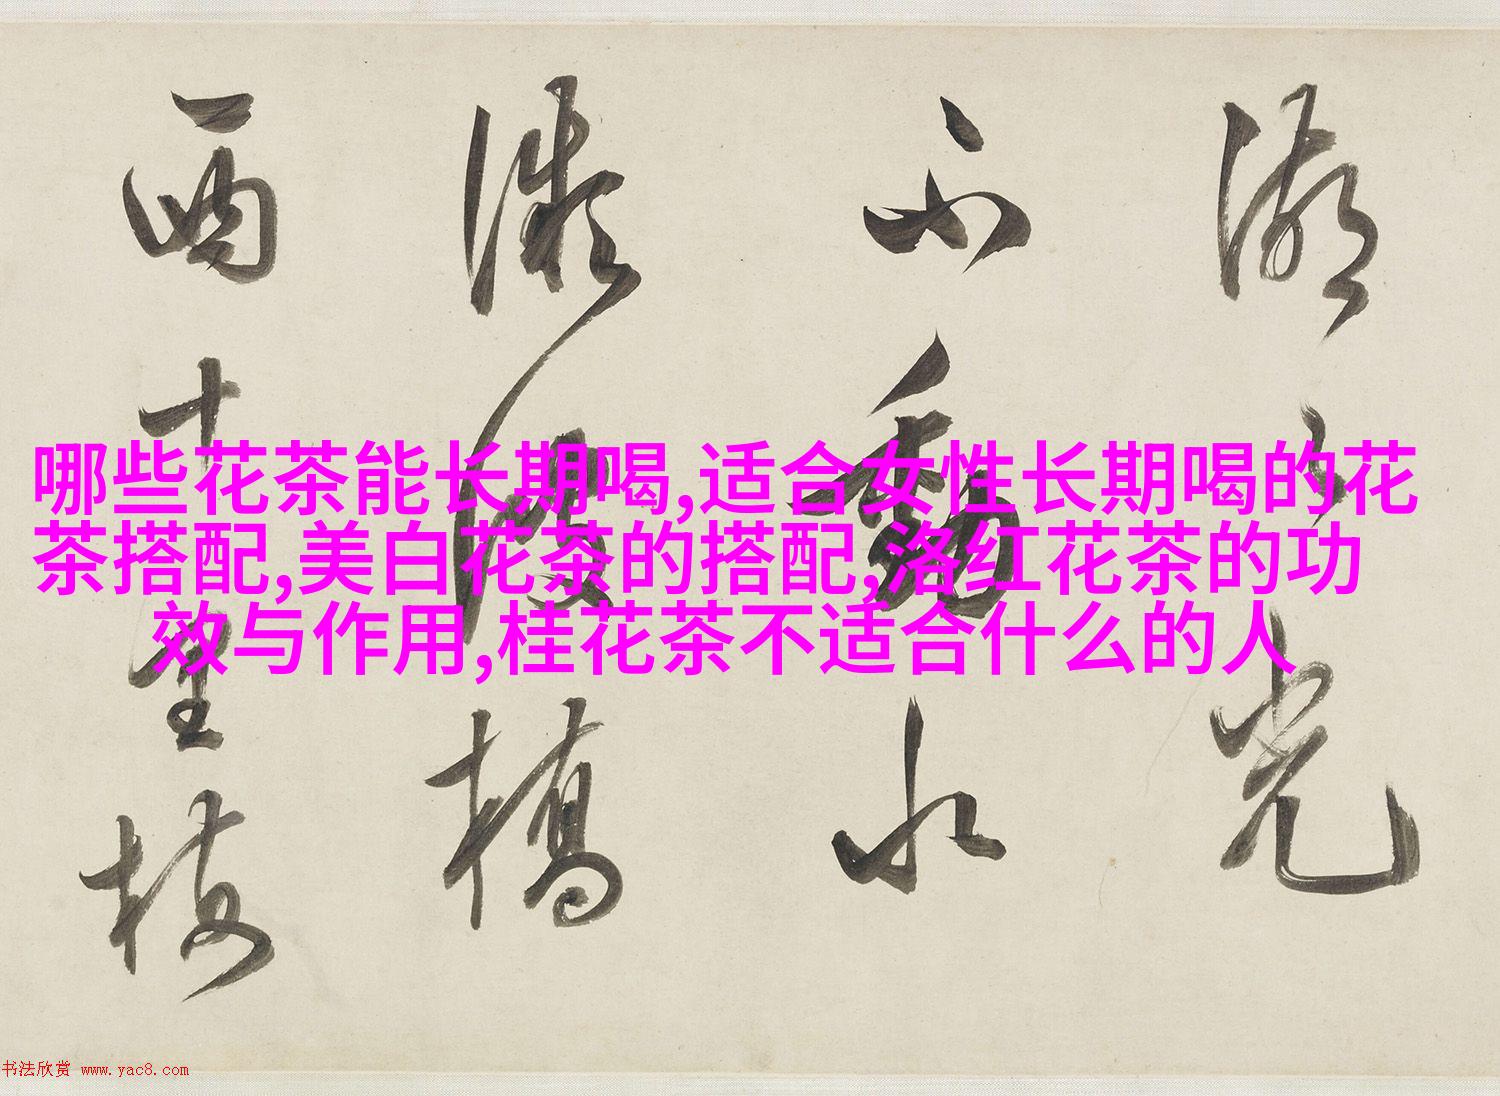 哪些花茶能长期喝,适合女性长期喝的花
茶搭配,美白花茶的搭配,洛红花茶的功
效与作用,桂花茶不适合什么的人
湖光
不動水
橋
十里
书法欣赏 www.yac8.com